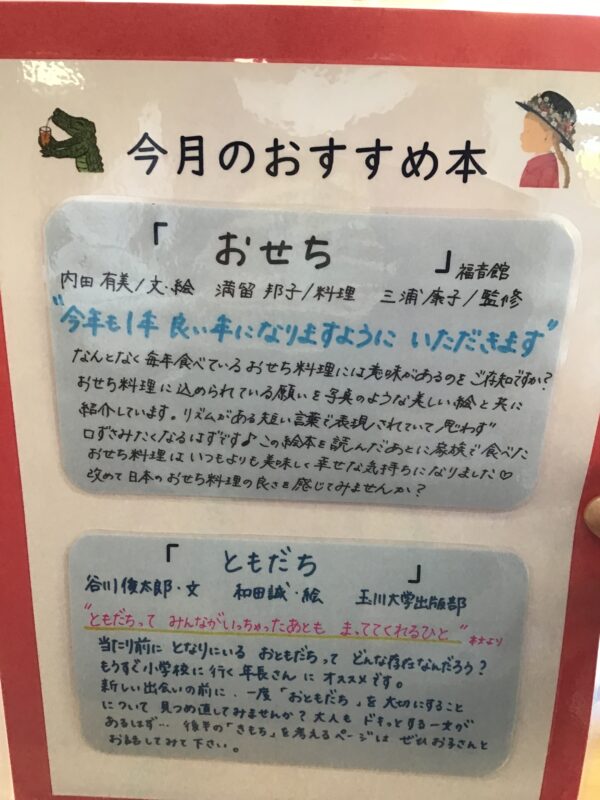 今月のおすすめ本
「おせち」福音館
内田有美/文・絵 満留邦子/料理 三浦康子/監修
"今年も1年良い年になりますように いただきます"
なんとなく毎年食べているおせち料理には意味があるのをご存知ですか?
おせち料理に込められている願いを写真のような美しい絵と共に
紹介しています。リズムがある短い言葉で表現されていて思わず
口ずさみたくなるはずです♪この絵本を読んだあとに家族で食べた
おせち料理はいつもよりも美味しく幸せな気持ちになりました♡
改めて日本のおせち料理の良さを感じてみませんか?
「ともだち」
谷川俊太郎・文 和田誠・絵 玉川大学出版部
"ともだちって みんながいっちゃったあとも まっててくれるひと" 本文より
当たり前に となりにいる おともだちって どんな存在なんだろう?
もうすぐ小学校に行く年長さんに オススメです。
新しい出会いの前に、一度「おともだち」を大切にすること
について 見つめ直してみませんか?大人も ドキッとする一文が
あるはず… 後半の「きもち」を考えるページは ぜひお子さんと
お話してみて下さい。